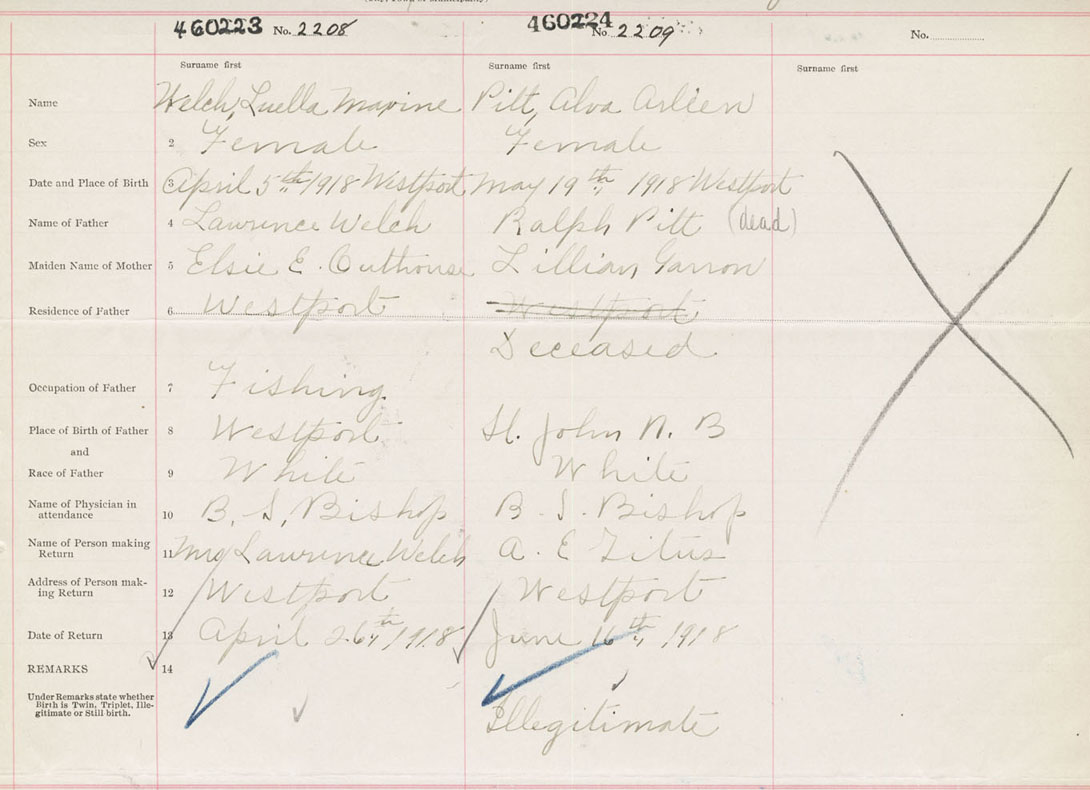 460223 No. 2208
460224 No 2209
No.
Surname first Surname first Surname first
Name Welch, Luella Maxine Pitt, Alva Arleen
Sex 2 Female Female
Date and Place of Birth 3 April 5th 1918 Westport May 19th 1918 Westport
Name of Father 4 Lawrence Welch Ralph Pitt (dead)
Maiden Name of Mother 5 Elsie E. Outhouse Lillian Garron
Residence of Father 6 Westport Westport
Deceased
Occupation of Father 7 Fishing
Place of Birth of Father 8 Westport St. John N. B
and
Race of Father 9 White White
Name of Physician in
attendance 10 B. S. Bishop B. S. Bishop
Name of Person making
Return 11 Mrs Lawrence Welch A. E Titus
Address of Person mak-
ing Return 12 Westport Westport
Date of Return 13 April 26th 1918 June 16th 1918
REMARKS 14
Under Remarks state whether
Birth is Twin, Triplet, Ille-
gitimate or Still birth.
Illegitimate